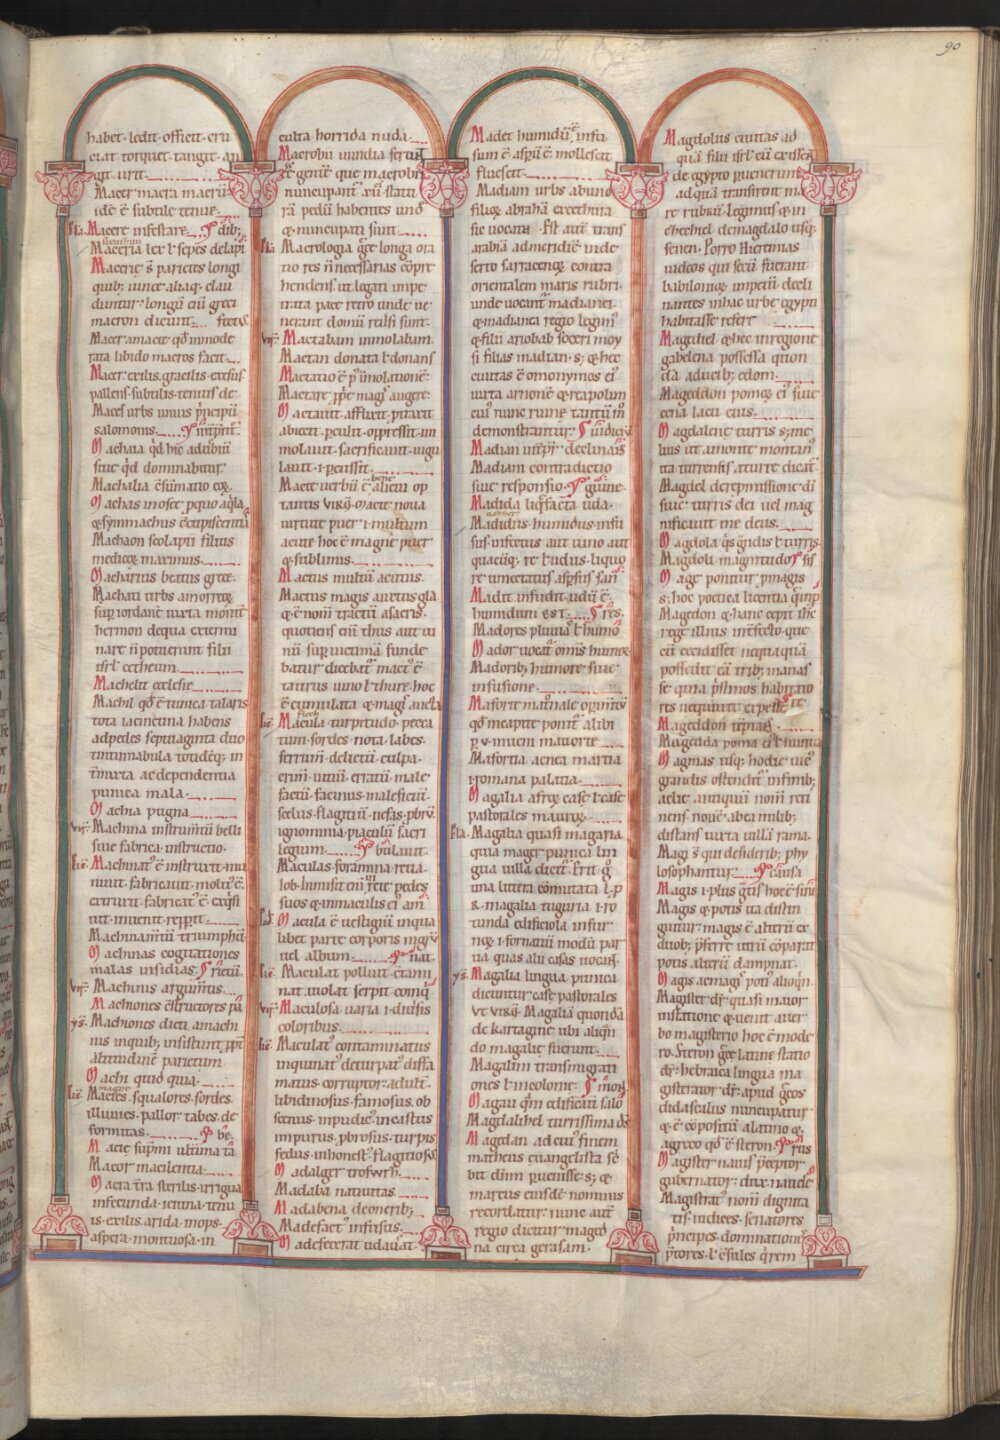 90
habet · ledit · officit · cru
ciat · torquet · tangit · an
git · urit
Macer macra macrũ
idẽ ẽ subtile tenue
Macere infestare
Macerie ẽ parietes longi
quib; uineẽ aliaq; clau
duntur · longũ enĩ greci
macron dicunt
Macer amacie qđ inmode
rata libido macros facit
Macer · exilis · gracilis · exesus
pallens · subtilis · tenuis
Maces urbs unius p̃ncipũ
salomonis
Machaia qđ hic adubiũ
siue qđ dominabitur
Machalia ẽsũmatio
Machaon scolapii filius
medicoꝝ maximus
Macharius beatus grece
Machati urbs amorreoꝝ
sup iordanẽ iuxta montẽ
hermon dequa extermi
nare ñ potuerunt filii
isrl cetheum
Machelit ecclesie
Machil qđ ẽ tunica talaris
tota iacinctina habens
adpedes septuaginta duo
tintinnabula totideq; in
t̃mixta ac dependentia
punica mala
Machia pugna
Machina instrum̃tũ belli
siue fabrica · instructio
Machinat̃ ẽ instruxit · mu
niuit · fabricauit · molit̃ ẽ
extruxit · fabricat̃ ẽ · exq̃si
uit · inuenit · repp̃it
Machinam̃tũ triumphũ
Machinas cogitationes
malas insidias
Machinis argum̃tis
Machiones ẽstructores pa
Machiones dicti amachi
nis inquib; insistunt p̃p̃t
altitudinẽ parietum
Machi quid qua
Macies · squalores · sordes
illuuies · pallor · tabes · de
formitas
Macte sup̃mi ultima
Macor macilentia
Macra t̃ra sterilis · irrigua
infecunda · ieiuna · tenu
is · exilis · arida · inops
aspera · montuosa · in
culta horrida nuda
Macrobii inindia
ẽ gentẽ que macrobii
nuncupant̃ · xii · statu
rã pedũ habentes und̃
q̃ nuncupati sunt
Macrologia gr̃ce longa ora
tio res ñ necessarias cõpre
hendens · ut legati impe
trata pace retro unde ue
nerant domũ reũsi sunt
Mactabam inmolabam
Mactan donata ł donans
Mactatio ẽ p̃ imolationẽ
Mactare p̃p̃e magĩ augere
Mactauit afflixit p̃traxit
abiecit · p̃culit · opp̃ressit · im
molauit · sacrificauit · iugu
lauit · i · p̃cussit
Macte uerbũ ẽ alicui op
tantis uirg̃ · macte noua
uirtute puer · i · multum
aucte hoc ẽ magne puer
q̃ sublimis
Mactus multũ acutus
Mactus magis auctus gla
q̃ ẽ nom̃ tractũ asacris
quotiens enĩ thus aut ui
nũ sup̃ uictima funde
batur dicebat̃ mact̃ ẽ
taurus uino ł thure hoc
ẽ cumulata q̃ magĩ aucta
Macula · turpitudo · pecca
tum · sordes · nota · labes
ferrum · delictũ · culpa
crim̃ · uitiũ · erratũ · male
factũ · facinus · maleficiũ
scelus · flagitiũ · nefas · pbrũ
ignominia · piaculũ sacri
legium
Maculas · foramina · retia
Iob · Inmisit enĩ rete pedes
suos q̃ inmaculis eĩ am
Macula ẽ uestigiũ inqua
libet parte corporis nigrũ
uel album
Maculat polluit · ẽtami
nat uiolat serpit
Maculosa uaria · i · diũsis
coloribus
Maculat̃ contaminatus
inquinat̃ deturpat̃ diffa
matus · corruptor · adult̃
libidinosus · famosus · ob
scenus · inpudic̃ · incestus
impurus · pbrosus · turpis
fedus · inhonest̃ · flagitiosꝰ
Madalger
Madaba natiuitas
Madabena deonerib;
Madefact̃ infusus
Madefecerat udau̾at
Madet humidũ ẽ infu
sum ẽ asp̃sũ ẽ mollescit
fluescit
Madiam urbs abuno
filioꝝ abrahã ex cethura
sic uocata · Est aut̃ trans
arabiã admeridiẽ inde
serto sarracenoꝝ contra
orientalem maris rubri
unde uocant̃ madianei
q̃ madianea regio · legim̃
q̃ filii ariobab soceri moy
si filias madian · ẽ; q̃ hec
ciuitas ẽ omonymos eĩ
iuxta arnonẽ q̃ areapolim
cuĩ nunc ruine tantũm̃
demonstrantur
Madian int̃pr̃ declinans
Madiam contradictio
siue responsio
Madida liq̃facta uda
Madidus · humidus · infu
sus · infectus aut uino aut
quacũq; re ł udus · liquo
re umectatus asp̃sus
Madit infudit · udũ ẽ
humidum est
Madores pluuia ł humõ
Mador uocat̃ omnis humor
Madorib; humore siue
infusione
Mafortẽ matronale operim̃tũ
qđ meapte ponit̃ · alibi
p̃ v · inuem mauorte
Mafortia aenea martia
i romana palatia
Magalia afroꝝ case ł case
pastorales mauroꝝ
Magalia quasi magaria
quia mager punica lin
gua uilla dicit̃ · Erit g̃
una littera cõmutata · l · p
r · magalia tuguria · i · ro
tunda edificiola insur
noꝝ · i · fornatiũ modũ par
ua quas alii casas uocant
Magalia lingua punica
dicuntur case pastorales
vt virg̃ Magalia quondã
de kartagine tibi aliqñ
do magalie fuerunt
Magalim transmigrati
ones ł incolonie
Magau qm̃ edificauit salo
Magdalihel turrissima dĩ
Magedan ad cuĩ finem
matheus euangelista sc̃
bit dñm p̃uenisse · ẽ; q̃
marcus eiusdẽ nominis
recordatur · nunc aut̃
regio dicitur maged
na circa gerasam
Magdolus ciuitas ad
quã filii isrl̃ cũ exissẽt
de egypto p̃uenerunt
ad quã transirent ma
re rubrũ legimus q̃ in
ezechiel demagdalo usq;
senen · Porro Hieremias
iudeos qui secũ fuerant
babilonioꝝ imperiũ decli
nantes inhac urbe egypti
habitasse refert
Magdihel q̃ hec inregione
gabelena possessa quon
dã aducib; edom
Mageddon pomoꝝ eĩ siue
cena lacu eius
Magdalene turris ẽ; me
lius ut amonte montan̾
ita turrensis aturre dicat̃
Magdel deremissione di
siue turris dei uel mag
nificauit me deus
Magdola q̃s gr̃ndis ł turris
Magdoli magnitudo
Mage ponitur p̃magis
ẽ; hoc poetica licentia
Magedon q̃ hanc cepit ihc̃
rege illius int̃fecto que
cũ cecidisset nequaquã
possedit eã trib; manas
se quia p̃stinos habitato
res nequiuit expellere
Mageddon
Magedda poma
Magmas usq; hodie uic̃
grandis ostendit̃ infinib;
aelie antiquũ nom̃ reti
nens nonẽ abea milib;
distans iuxta uillã rama
Magi ẽ qui desiderib; phy
losophantur
Magis i plus
Magis q̃ potis ita distin
guitur · magis ẽ alterũ ex
duob; p̃ferre utrũ cõparat̃
potis alterũ dampnat
Magis ac magĩ poti alioq̃n
Magister dr̃ quasi maior
instatione q̃ uenit auer
bo magisterio hoc ẽ mode
ro · Steron gr̃ce latine statio
dr̃ · hebraica lingua ma
gisterator dr̃ · apud grecos
didascalus nuncupatur
q̃ ẽ cõpositũ alatino q̃
a greco qđ ẽ steron
Magister nauis p̃ceptor
gubernator · dux · naucle
Magistrat̃ nom̃ dignita
tis · iudices · senatores
p̃ncipes · dominatione
p̃tores · ł c̃sules